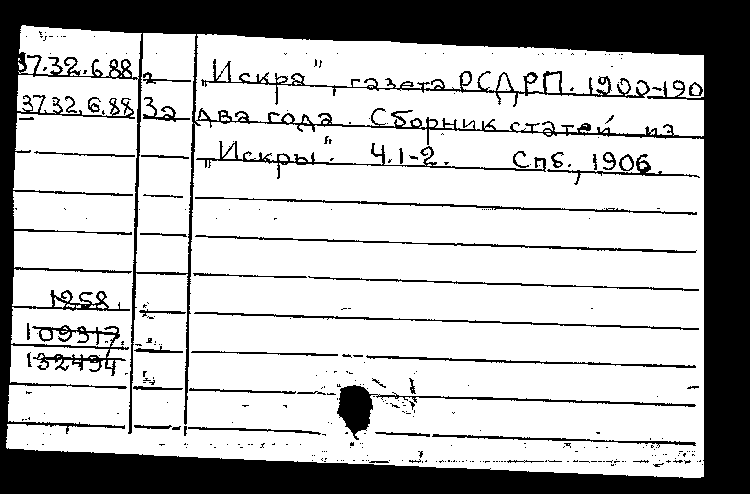 37.32.6.88 „Искра", газета РСДРП. 1900-190
37.32.6.88 За два года. Сборник статей из
„Искры". Ч.1-2. Спб., 1906.
1258.
109317
132494